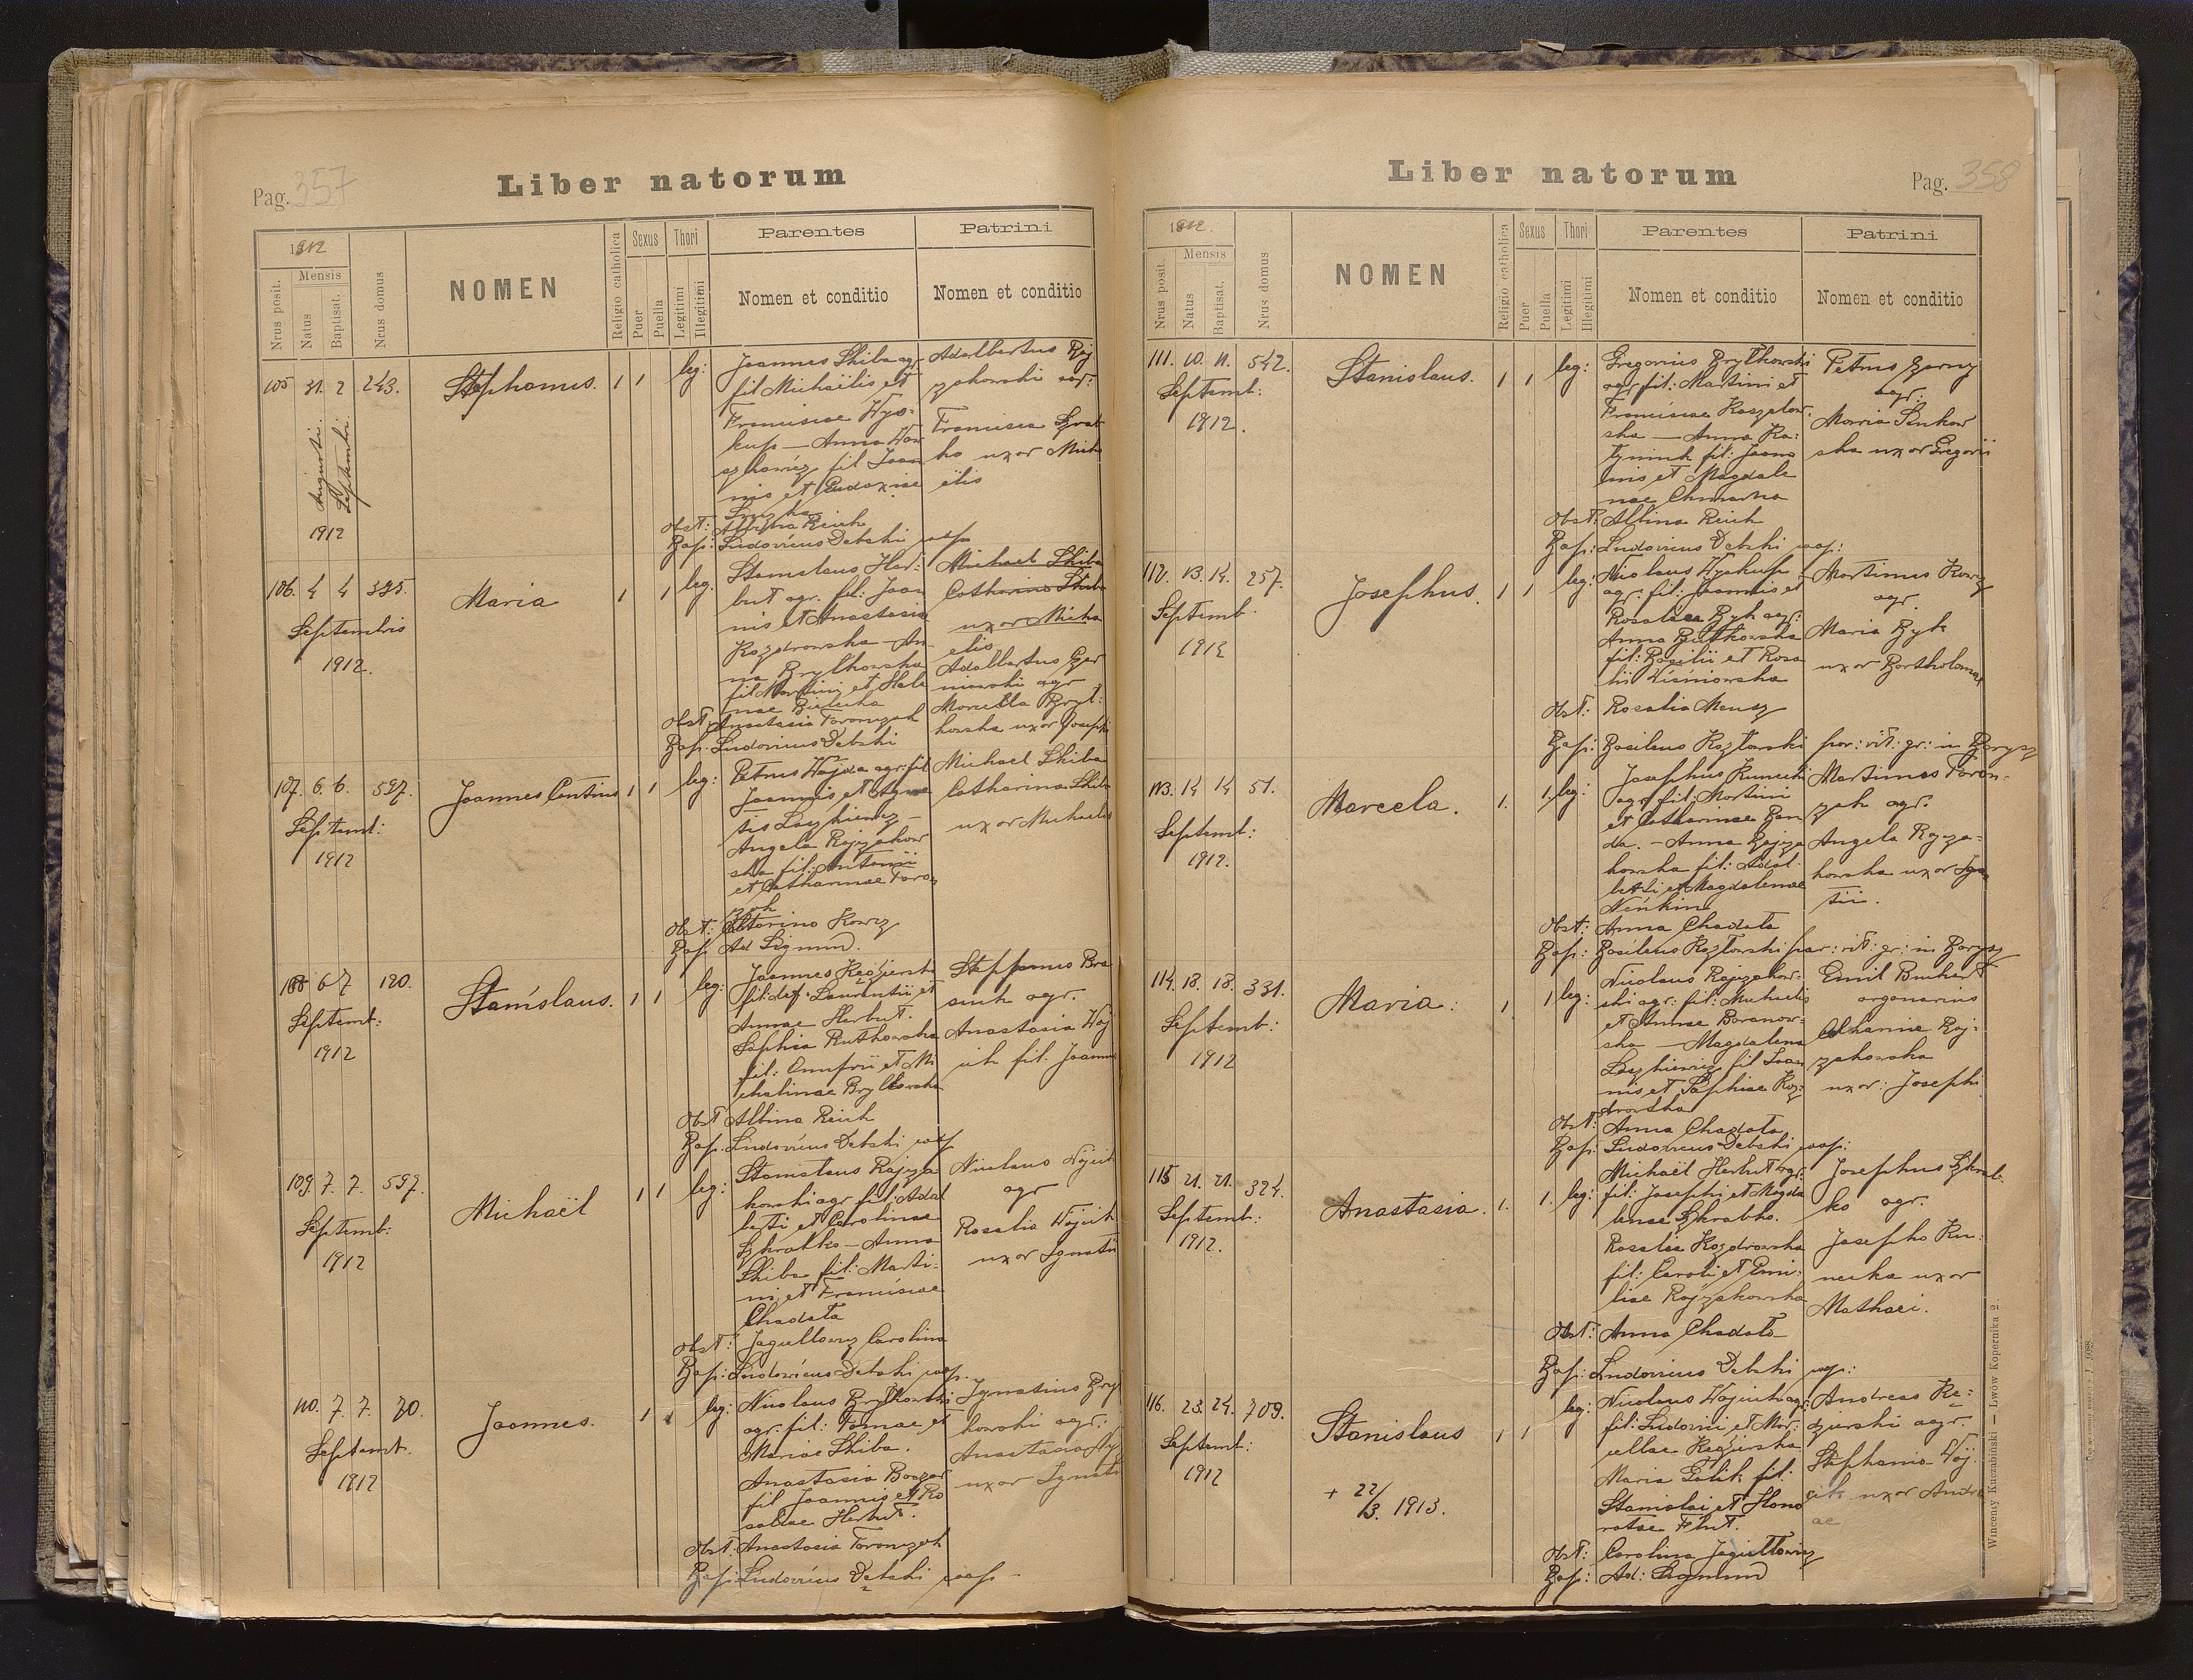 Pag. 357
Liber natorum
1912
Mensis
Nrus posit.
Natus
Baptisat.
Nrus domus
NOMEN
Religio catholica
Sexus
Puer
Puella
Thori
Legitimi
Illegitimi
Parentes
Nomen et conditio
Patrini
Nomen et conditio
105 31. 2 243.
Augusti
Septembri
1912
Stephanus. 1 1 leg:
Joannes Skiba agr
fil Michaëlis et
Franciscae Wys-
kup — Anna War
fil Joan
nis et Eudoxiae
Obst: Albina Reich
Bap: Ludovicus Debski coop
Adalbertus Roj
zakowski agr:
Francisca
ko uxor Mich
ëlis
106. 4 4 395.
Septembris
1912.
Maria 1 1 leg
Stanislaus Her:
but agr. fil: Joan
nis et Anastasia
Kozdrowska — An
na Brylkowska
fil Martini et Hele
nae
Obst: Anastasia Toronczak
Bap: Ludovicus Debski
Michael Skiba
Catharina Skiba
uxor Micha
elis
Adalbertus
agr
Marcella Bryl:
kowska uxor Josephi
107. 6. 6. 597.
Septemb:
1912
Joannes Cantius 1 1 leg:
Petrus Wojda agr: fil
Joannis et Agne
tis Laszkiewicz —
Angela Rojzakow
ska fil: Antonii
et Catharinae Toron
zak
Obst: Kowcz
Bap Ad Sigmund.
Michael Skiba
Catharina Skiba
uxor Michaelis
108 6 7 120.
Septemb:
1912
Stanislaus. 1 1 leg:
Joannes Kędzierski
fil: def. Laurentii et
Annae Herbut.
Sophia Rutkowska
fil: Onufrii et Mi
chalinae Brylkowska
Obst Albina Reich
Bap: Ludovicus Debski coop
Stephanus Bra
siuk agr.
Anastasia Wój
cik fil. Joannis
109. 7. 7. 597.
Septemb:
1912
Michaël 1 1 leg:
Stanislaus Rojza
kowski agr fil: Adal
berti et Carolinae
Szkrabko — Anna
Skiba fil: Marti-
ni et Franciscae
Chadata
Obst: Jagiellowicz Carolina
Bap: Ludovicus Debski coop.
Nicolaus Wójcik
agr
Rosalia Wójcik
uxor Ignatii
110. 7. 7. 70.
Septemb.
1912
Joannes. 1 1 leg:
Nicolaus Brylkowski
agr. fil: Tomae et
Mariae Skiba.
Anastasia
fil Joannis et Ro
saliae Herbut.
Obst: Anastasia Toronczak
Bap: Ludovicus Debski coop —
Ignatius Bryl
kowski agr:
Anastasia
uxor Ignatii
Liber natorum
Pag. 358
1912.
Mensis
Nrus posit.
Natus
Baptisat.
Nrus domus
NOMEN
Religio catholica
Sexus
Puer
Puella
Thori
Legitimi
Illegitimi
Parentes
Nomen et conditio
Patrini
Nomen et conditio
111. 10. 11. 542.
Septemb:
1912.
Stanislaus. 1 1 leg:
Gregorius Brylkowski
agr fil: Martini et
Franciscae Koszelow
ska — Anna Ka:
fil: Joan
nis et Magdale
nae
Obst: Albina Reich
Bap: Ludovicus Debski coop:
Petrus
agr:
Maria Senkow
ska uxor Gregorii
112. 13. 14. 257.
Septemb
1912
Josephus. 1 1 leg:
Nicolaus Wyskup
agr: fil: Joannis et
Rosaliae Byk agr:
Anna Rutkowska
fil: Basilii et Rosa
lii Wisniowska
Obst: Rosalia
Bap: Basileus Kozłowski par: rit: gr: in
Martinus Kowcz
agr.
Maria Byk
uxor Bartholomaei
113. 14 14 51.
Septemb:
1912.
Marcela. 1. 1. leg:
Josephus Kunecki
agr: fil: Martini
et Catharinae Ban
da. — Anna Rojza
kowska fil: Adal
berti et Magdalenae
Obst: Anna Chadata
Bap: Basileus Kozłowski par: rit: gr: in
Martinus Toron-
zak agr.
Angela Rojza-
kowska uxor Igna
tii.
114. 18. 18. 331.
Septemb:
1912
Maria: 1 1 leg:
Nicolaus Rojzakow:
ski agr: fil: Michaelis
et Annae Baranow-
ska — Magdalena
Laszkiewicz fil Joan
nis et Sophiae Koz-
drowska
Obst: Anna Chadata
Bap: Ludovicus Debski coop:
Emil
organarius
Roj-
zakowska
uxor: Josephi
115 21. 21. 324.
Septemb:
1912.
Anastasia. 1. 1. leg:
Michaël Herbut agr:
fil: Josephi et Magda
lenae Szkrabko.
Rosalia Kozdrowska
fil: Caroli et Emi-
liae Rojzakowska
Obst: Anna Chadata
Bap: Ludovicus Debski coop:
Josephus Szkrab
ko agr.
Josepha Ku-
necka uxor
Mathaei.
116. 23. 24. 709.
Septemb:
1912
Stanislaus 1 1 leg:
+ 22/3. 1913.
Nicolaus Wójcik agr:
fil: Ludovici et Mar-
cellae Kędzierska
Maria Galik fil:
Stanislai et Hono
ratae
Obst: Carolina Jagiellowicz
Bap: Ad: Sigmund
Andreas Kę-
dzierski agr.
Stephania Wój-
cik uxor Andre
ae
Wincenty Kuczabiński — Lwów Kopernika 2.